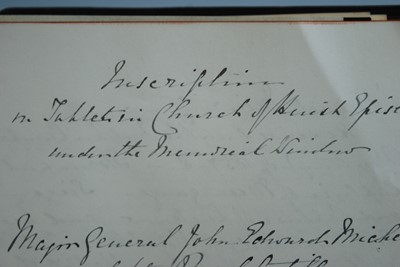 Inscription
on Tablet in Church of Huish Epis
under the Memorial Window
Major General John Edward Miche